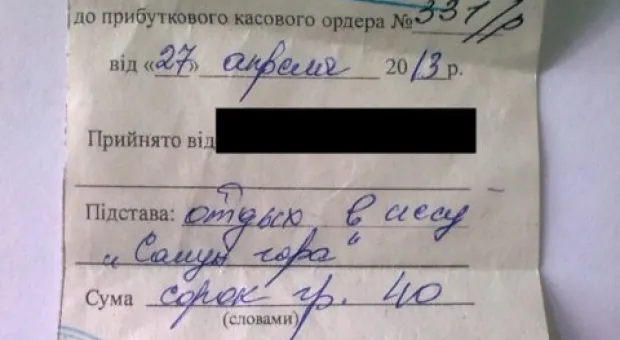 до прибуткового касового ордера № 331/р
від «27» апреля 2013 р.
Прийнято від
Підстава: отдых в лесу
„Самун гора“
Сума сорок гр. 40
(словами)